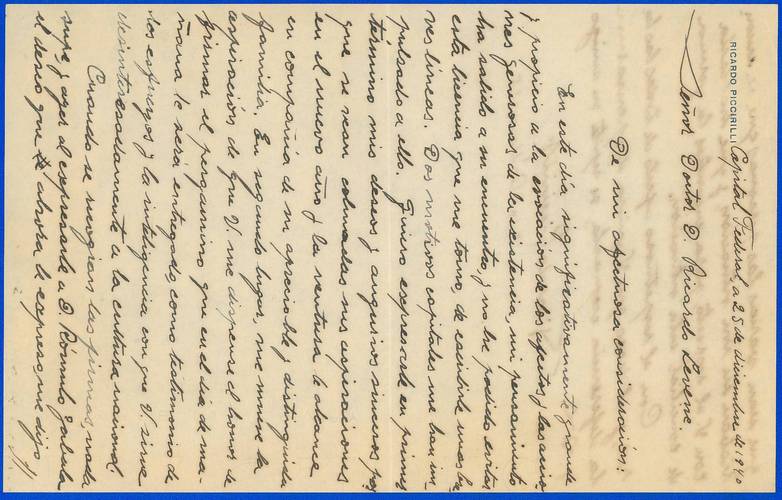 RICARDO PICCIRILLI
Capital Federal a 25 de diciembre de 1940
Señor Doctor D. Ricardo Levene.
De mi afectuosa consideración:
En este día significativamente grande
y propicio a la de los afectos y las
generosas de la existencia, mi pensamiento
ha salido a su encuentro, y no he podido evitar
esta licencia que me tomo, de escribirle unas bre
ves líneas. Dos motivos capitales me han im
pulsado a ello. Quiero expresarle en primer
término mis deseos y augurios sinceros por
que se vean colmadas sus aspiraciones
en el nuevo año y la ventura le alcance
en compañía de su apreciable y distinguida
familia. En segundo lugar, me mueve la
aspiración de que V. me dispense el honor de
firmar el pergamino que en el día de ma-
ñana le será entregado, como testimonio de
los esfuerzos y la inteligencia con que V. sirve
desinteresadamente a la cultura nacional.
Cuando se recogían las firmas, nada
supe, y ayer al expresarle a D. Rómulo Zabala
el deseo que ahora le expreso, me dijo